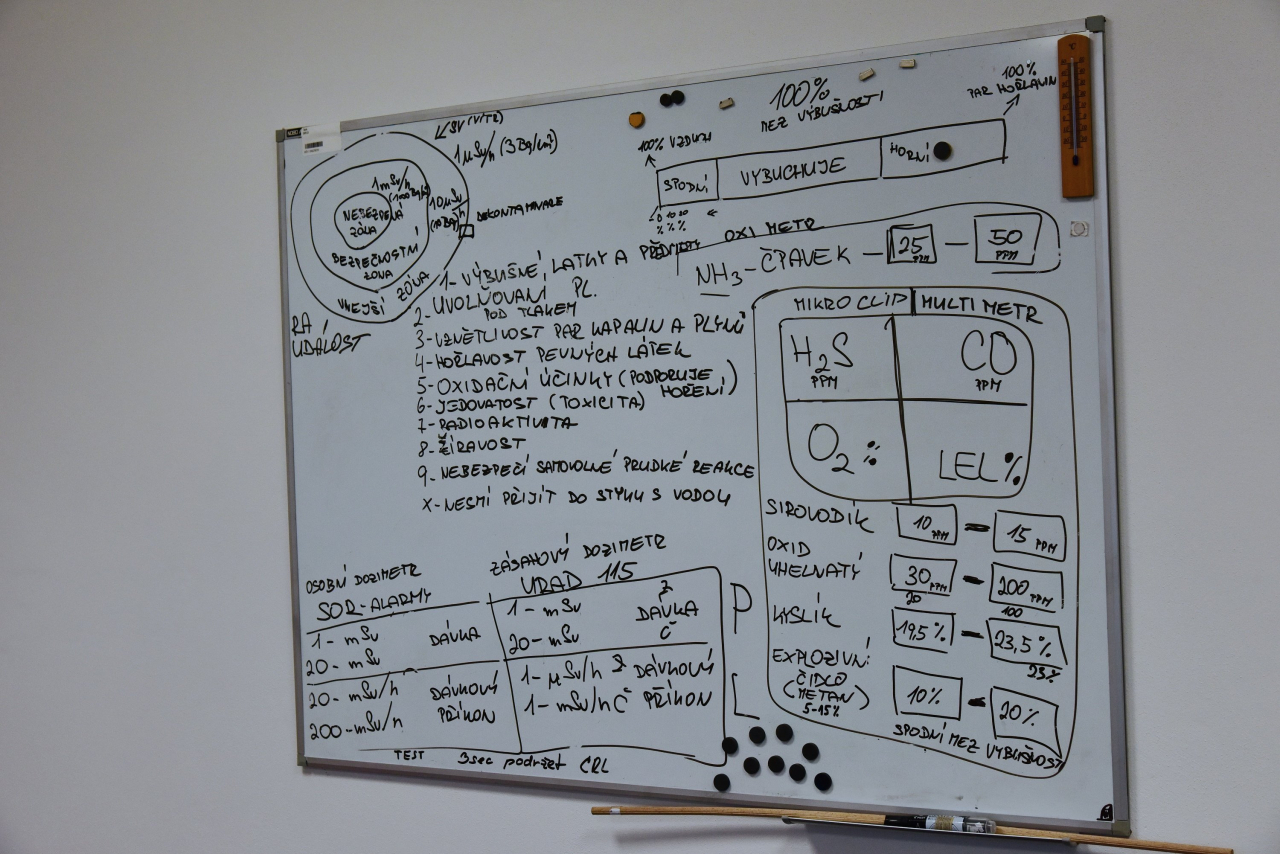 SV (VITR)
1 µSv/h (3 Bq/cm²)
1 mSv/h
10 µSv/h
NEBEZPEČNÁ
ZÓNA
BEZPEČNOSTNÍ
ZÓNA
VNEJŠÍ ZÓNA
DEKONTAMINACE
RA
UDÁLOST
100%
MEZ VÝBUŠNOSTI
100%
PAR HOŘLAVIN
100% VZDUCH
SPODNÍ
VYBUCHUJE
HORNÍ
0 10 20
% % %
OXI METR
NH3 - ČPAVEK - 25 PPM - 50 PPM
1- VÝBUŠNÉ LATKY A PŘEDMĚTY
2- UVOLŇOVANÍ PL.
POD TLAKEM
3- VZNĚTLIVOST PAR KAPALIN A PLYNŮ
4- HOŘLAVOST PEVNÝCH LÁTEK
5- OXIDAČNÍ ÚČINKY (PODPORUJE
HOŘENÍ)
6- JEDOVATOST (TOXICITA)
7- RADIOAKTIVITA
8- ŽÍRAVOST
9- NEBEZPEČÍ SAMOVOLNÉ PRUDKÉ REAKCE
X- NESMÍ PŘIJÍT DO STYKU S VODOU
MIKRO CLIP | MULTI METR
H2S
PPM
CO
PPM
O2 %
LEL %
SIROVODÍK 10 PPM = 15 PPM
OXID
UHELNATÝ 30 PPM - 200 PPM
20 100
KYSLÍK 19,5% - 23,5%
23%
EXPLOZIVNÍ
ČIDLO
(METAN)
5-15%
10% - 20%
SPODNÍ MEZ VÝBUŠNOSTI
OSOBNÍ DOZIMETR
SOR-ALARMY
1- mSv DÁVKA
20- mSv
20- mSv/h DÁVKOVÝ
200- mSv/h PŘÍKON
ZÁSAHOVÝ DOZIMETR
URAD 115
1- mSv Ž
DAVKA
20- mSv Č
1- µSv/h Ž DÁVKOVÝ
1- mSv/h Č PŘÍKON
P
L
TEST 3sec podržet CRL
°C